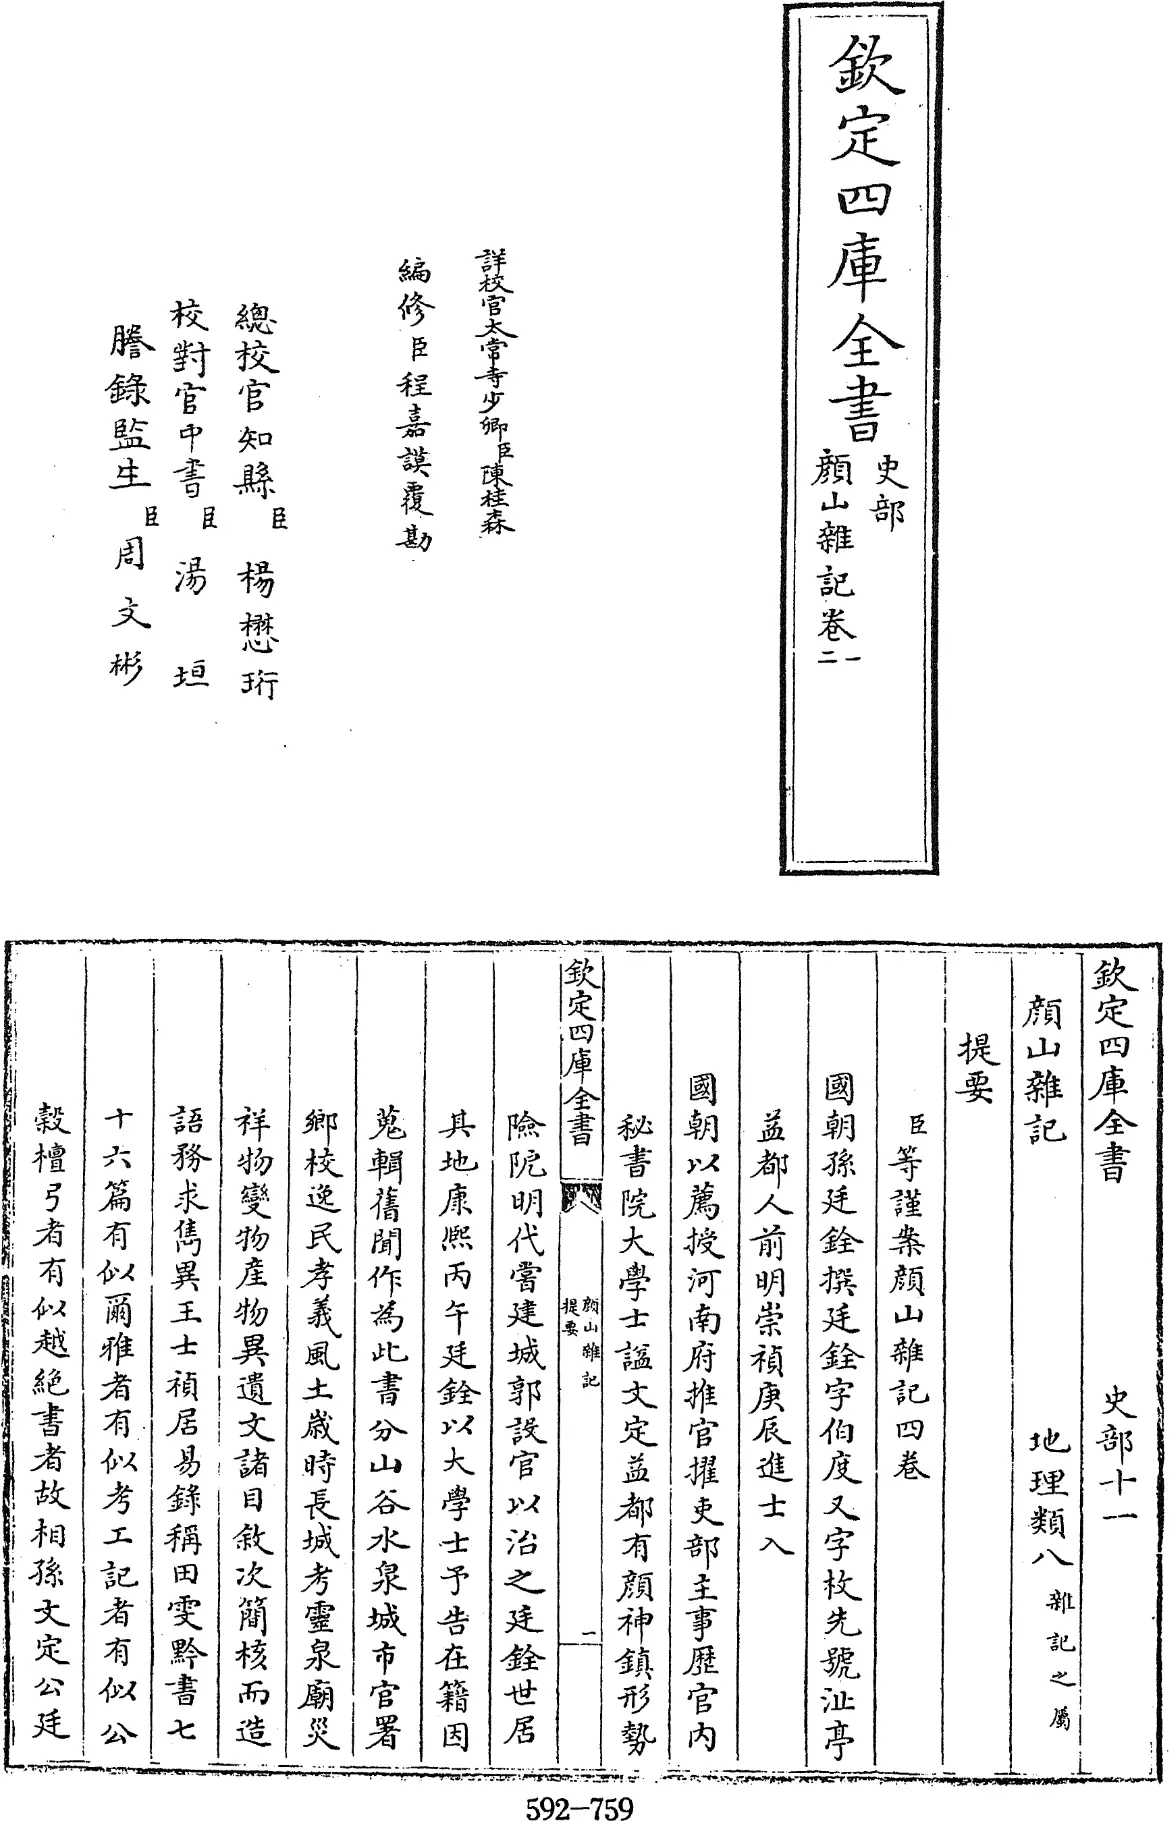 欽定四庫全書
史部
顏山雜記卷一
二
詳校官太常寺少卿臣陳桂森
編修臣程嘉謨覆勘
總校官知縣臣楊懋珩
校對官中書臣湯垣
謄錄監生臣周文彬
欽定四庫全書 史部十一
顏山雜記 地理類八雜記之屬
提要
臣等謹案顏山雜記四卷
國朝孫廷銓撰廷銓字伯度又字枚先號沚亭
益都人前明崇禎庚辰進士入
國朝以薦授河南府推官擢吏部主事歷官內
秘書院大學士諡文定益都有顏神鎮形勢
欽定四庫全書
顏山雜記
提要
一
險阨明代嘗建城郭設官以治之廷銓世居
其地康熙丙午廷銓以大學士予告在籍因
蒐輯舊聞作為此書分山谷水泉城市官署
鄉校逸民孝義風土歲時長城考靈泉廟災
祥物變物產物異遺文諸目敘次簡核而造
語務求雋異王士禎居易錄稱田雯黔書七
十六篇有似爾雅者有似考工記者有似公
穀檀弓者有似越絕書者故相孫文定公廷
592-759